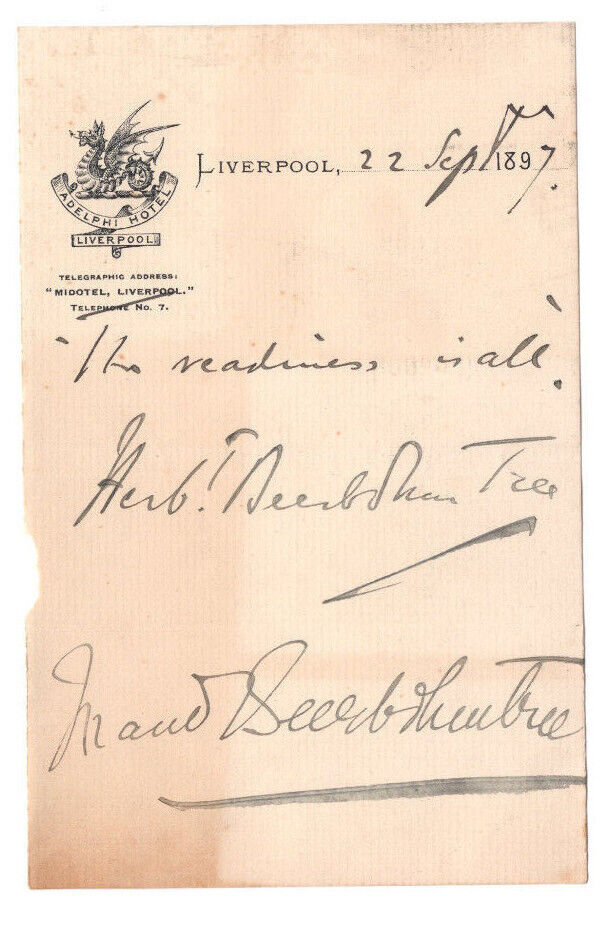 ADELPHI HOTEL
LIVERPOOL
TELEGRAPHIC ADDRESS:
"MIDOTEL, LIVERPOOL."
TELEPHONE No. 7.
LIVERPOOL, 22 Sept 1897.
"The readiness is all".
Herbt. Beerbohm Tree
Maud Beerbohm Tree